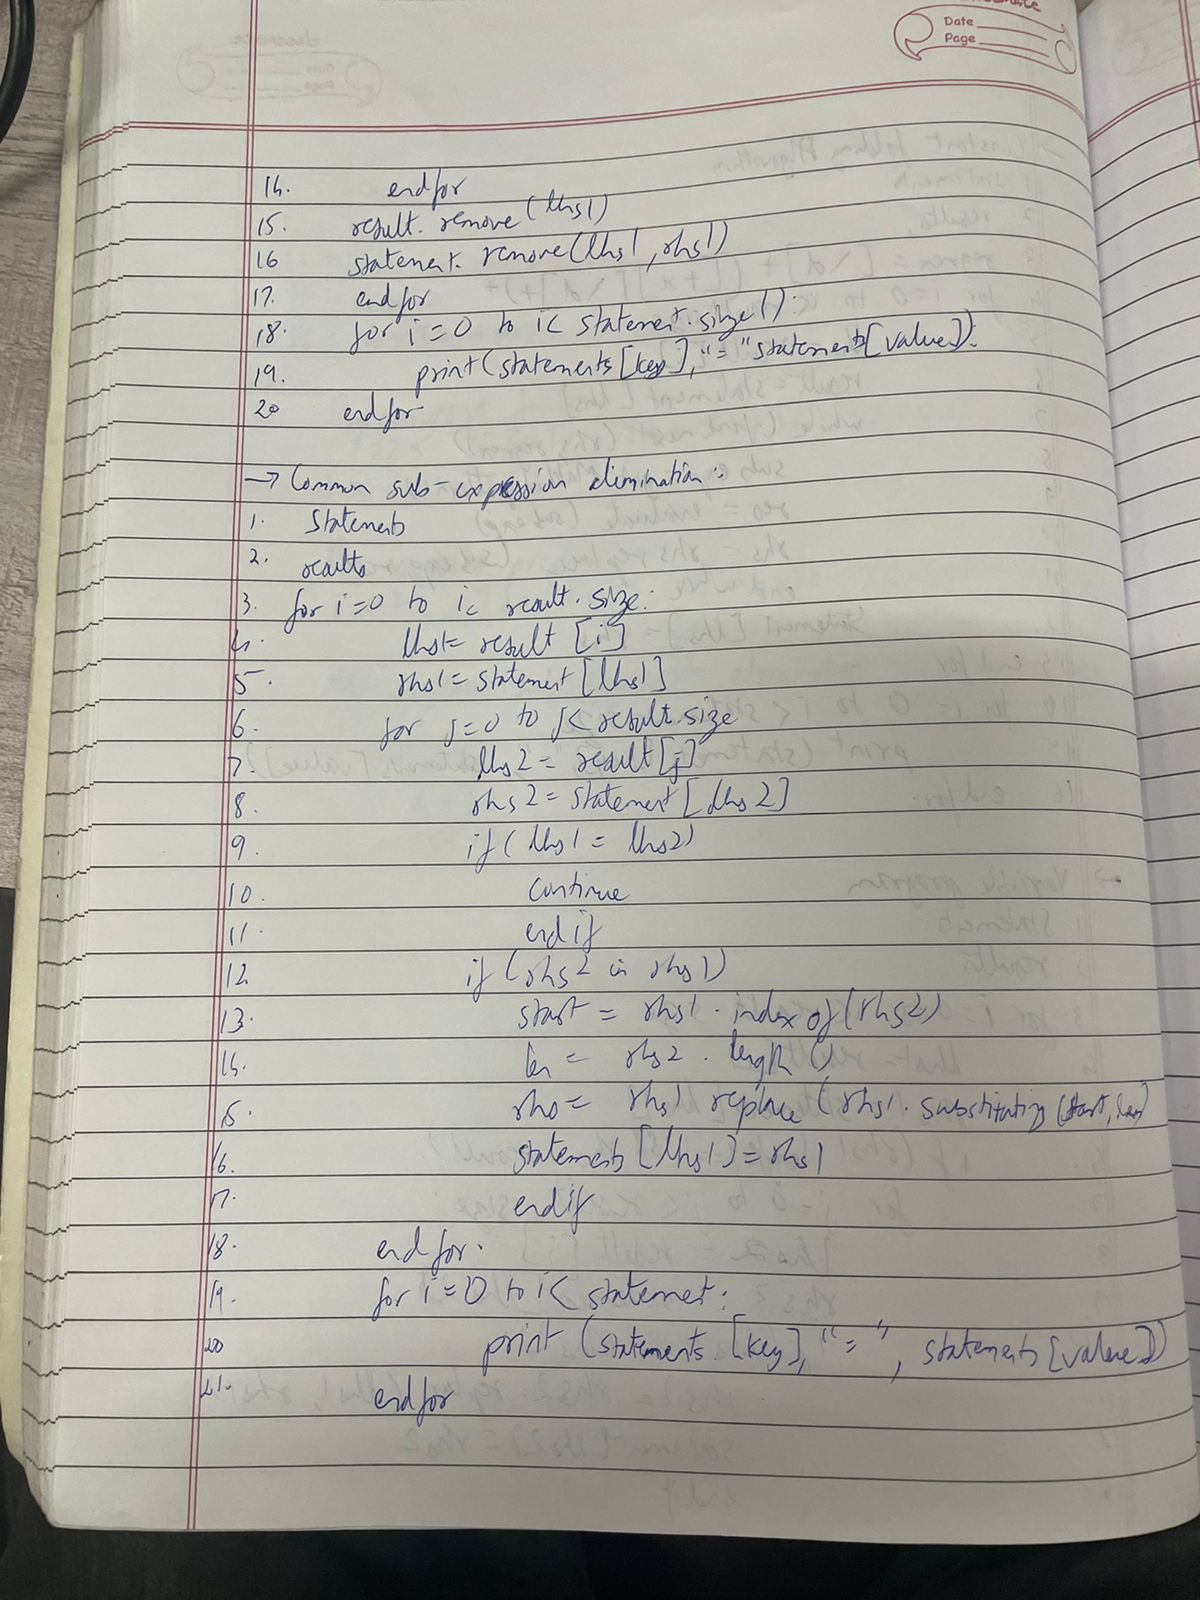 Date
Page
14. endfor
15. result. remove(lhs1)
16 statement. remove(lhs1, rhs1)
17. endfor
18. for i=0 to i< statement.size():
19. print(statements[key], "=" statements[value]).
20 endfor
→ Common sub-expression elimination:
1. Statements
2. results
3. for i=0 to i< result.size:
4. lhs1= result [i]
5. rhs1= statement [lhs1]
6. for j=0 to j< result.size
7. lhs2 = result[j]
8. rhs2 = statement [lhs2]
9. if (lhs1 = lhs2)
10. continue
11. endif
12 if (rhs2 in rhs1)
13. start = rhs1.index of (rhs2)
14. len = rhs2.length()
15. rhs = rhs1 replace (rhs1. (start, len)
16. statements [lhs1] = rhs1
17. endif
18. end for.
19. for i=0 to i< statement:
20 print (statements.[key], "=", statements[value])
21. endfor